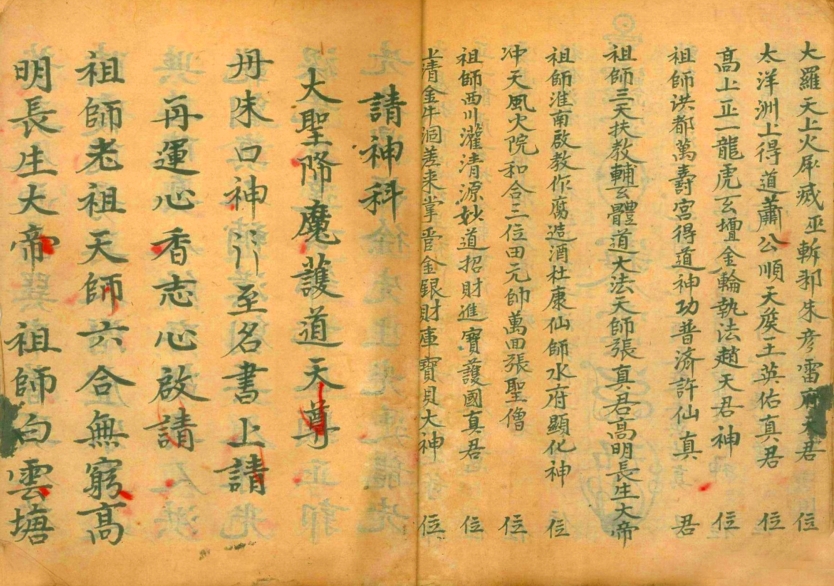 大羅天上火犀滅巫斬邪朱彥雷府天君 位
太洋洲上得道蕭公順天王英佑真君 位
高上正一龍虎玄壇金輪執法趙天君神 位
祖師洪都萬壽宮得道神功普済許仙真 君
祖師三天扶教輔玄體道大法天師張真君高明長生大帝
祖師淮南啟教作腐造酒杜康仙師水府顯化神 位
冲天風火院和合二位田元帥萬回張聖僧 位
祖師西川灌清源妙道招財進寳護國真君 位
上清金牛洞差来掌管金銀財庫寶貝大神 位
請神科
大聖降魔護道天尊
丹朱口神 引至名書上請
再運心香志心啟請
祖師老祖天師六合無窮高
明長生大帝 祖師白雲塘